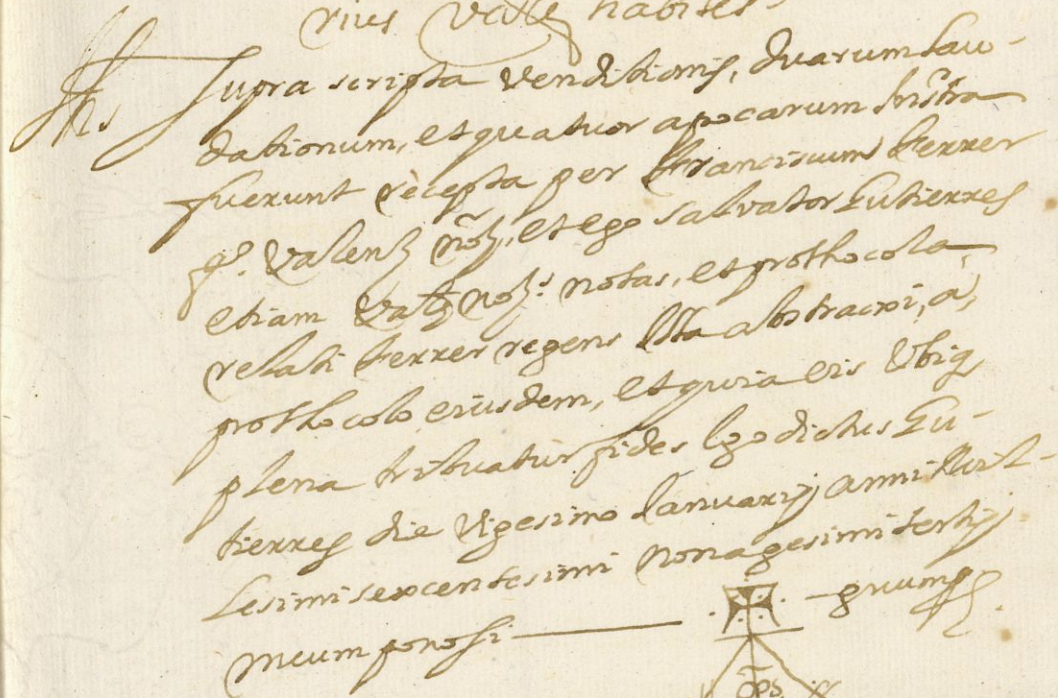 rius Vallę habites.
Supra scripta venditionis, duarum Lau-
dationum, et quatuor apocarum Instra
fuerunt recepta per Franciscum Ferrer
q.º Valenẟ Noṫ, et ego Salvator Gutierres
etiam Valẟ Noṫ.s notas, et prothocola,
relati Ferrer regens Illa abstracxi, a,
prothocolo eiusdem, et quia eis Ubiq,
plena tribuatur fides Ego dictus Gu-
tierres die Vigesimo Ianuarij anni Mil-
Lesimi sexcentesimi nonagesimi tertij
meum pososi — gnum